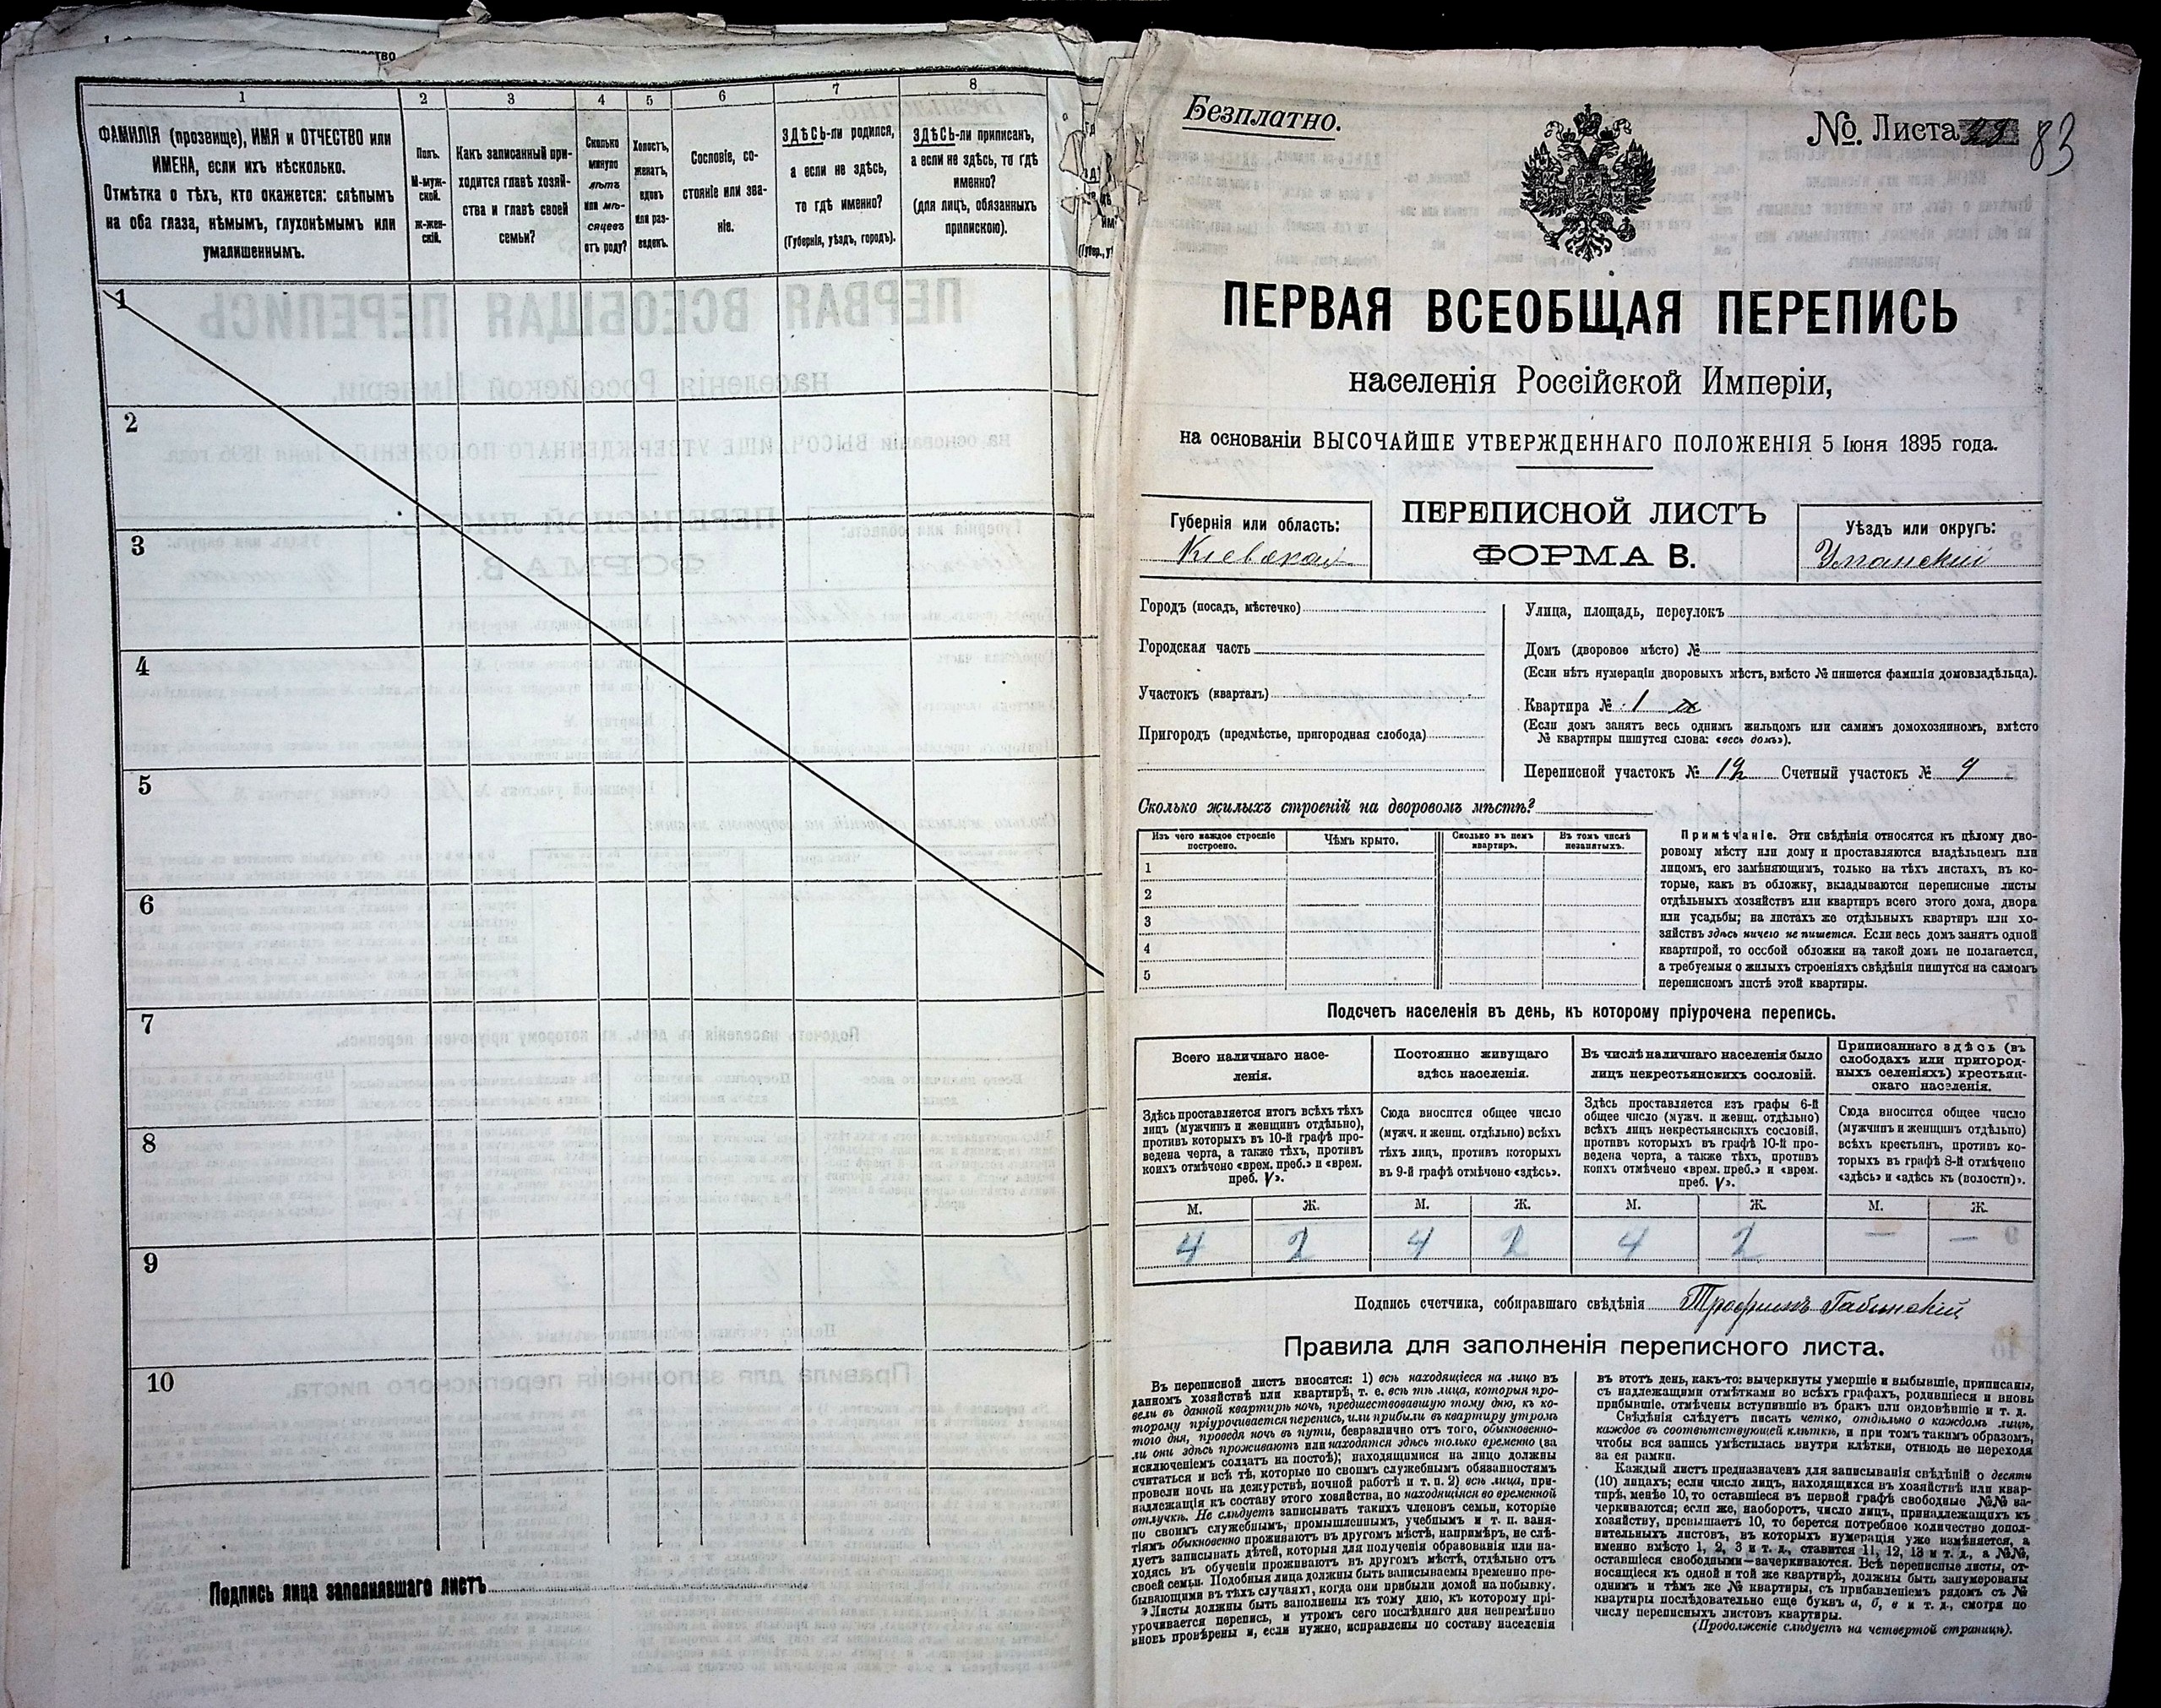 тво
1 2 3 4 5 6 7 8
ФАМИЛІЯ (прозвище), ИМЯ и ОТЧЕСТВО или
ИМЕНА, если ихъ нѣсколько.
Отмѣтка о тѣхъ, кто окажется: слѣпымъ
на оба глаза, нѣмымъ, глухонѣмымъ или
умалишеннымъ.
Полъ.
М-муж-
ской.
ж-жен-
скій.
Какъ записанный при-
ходится главѣ хозяй-
ства и главѣ своей
семьи?
Сколько
минуло
лѣтъ
или мѣ-
сяцевъ
отъ роду?
Холостъ,
женатъ,
вдовъ
или раз-
веденъ.
Сословіе, со-
стояніе или зва-
ніе.
ЗДѢСЬ-ли родился,
а если не здѣсь,
то гдѣ именно?
(Губернія, уѣздъ, городъ).
ЗДѢСЬ-ли приписанъ,
а если не здѣсь, то гдѣ
именно?
(для лицъ, обязанныхъ
припискою).
1
2
3
4
5
6
7
8
9
10
Подпись лица заполнявшаго листъ
Безплатно.
№ Листа 83
ПЕРВАЯ ВСЕОБЩАЯ ПЕРЕПИСЬ
населенія Россійской Имперіи,
на основаніи ВЫСОЧАЙШЕ УТВЕРЖДЕННАГО ПОЛОЖЕНІЯ 5 Іюня 1895 года.
Губернія или область:
Кіевская
ПЕРЕПИСНОЙ ЛИСТЪ
ФОРМА В.
Уѣздъ или округъ:
Уманскій
Городъ (посадъ, мѣстечко)
Городская часть
Участокъ (кварталъ)
Пригородъ (предмѣстье, пригородная слобода)
Улица, площадь, переулокъ
Домъ (дворовое мѣсто) №
(Если нѣтъ нумераціи дворовыхъ мѣстъ, вмѣсто № пишется фамилія домовладѣльца).
Квартира № 1
(Если домъ занятъ весь однимъ жильцомъ или самимъ домохозяиномъ, вмѣсто
№ квартиры пишутся слова: «весь домъ»).
Переписной участокъ № 12 Счетный участокъ № 9
Сколько жилыхъ строеній на дворовомъ мѣстѣ?
Изъ чего каждое строеніе
построено.
Чѣмъ крыто.
Сколько въ немъ
квартиръ.
Въ томъ числѣ
незанятыхъ.
1
2
3
4
5
Примѣчаніе. Эти свѣдѣнія относятся къ цѣлому дво-
ровому мѣсту или дому и проставляются владѣльцемъ или
лицомъ, его замѣняющимъ, только на тѣхъ листахъ, въ ко-
торые, какъ въ обложку, вкладываются переписные листы
отдѣльныхъ хозяйствъ или квартиръ всего этого дома, двора
или усадьбы; на листахъ же отдѣльныхъ квартиръ или хо-
зяйствъ здѣсь ничего не пишется. Если весь домъ занятъ одной
квартирой, то особой обложки на такой домъ не полагается,
а требуемыя о жилыхъ строеніяхъ свѣдѣнія пишутся на самомъ
переписномъ листѣ этой квартиры.
Подсчетъ населенія въ день, къ которому пріурочена перепись.
Всего наличнаго насе-
ленія.
Здѣсь проставляется итогъ всѣхъ тѣхъ
лицъ (мужчинъ и женщинъ отдѣльно),
противъ которыхъ въ 10-й графѣ про-
ведена черта, а также тѣхъ, противъ
коихъ отмѣчено «врем. преб.» и «врем.
преб. V».
Постоянно живущаго
здѣсь населенія.
Сюда вносится общее число
(мужч. и женщ. отдѣльно) всѣхъ
тѣхъ лицъ, противъ которыхъ
въ 9-й графѣ отмѣчено «здѣсь».
Въ числѣ наличнаго населенія было
лицъ некрестьянскихъ сословій.
Здѣсь проставляется изъ графы 6-й
общее число (мужч. и женщ. отдѣльно)
всѣхъ лицъ некрестьянскихъ сословій,
противъ которыхъ въ графѣ 10-й про-
ведена черта, а также тѣхъ, противъ
коихъ отмѣчено «врем. преб.» и «врем.
преб. V».
Приписаннаго здѣсь (въ
слободахъ или пригород-
ныхъ селеніяхъ) крестьян-
скаго населенія.
Сюда вносится общее число
(мужчинъ и женщинъ отдѣльно)
всѣхъ крестьянъ, противъ ко-
торыхъ въ графѣ 8-й отмѣчено
«здѣсь» и «здѣсь къ (волости)».
М. Ж. М. Ж. М. Ж. М. Ж.
4 2 4 2 4 2 — —
Подпись счетчика, собиравшаго свѣдѣнія Трофимъ Габинскій
Правила для заполненія переписного листа.
Въ переписной листъ вносятся: 1) всѣ находящіеся на лицо въ
данномъ хозяйствѣ или квартирѣ, т. е. всѣ тѣ лица, которыя про-
вели въ данной квартирѣ ночь, предшествовавшую тому дню, къ ко-
торому пріурочивается перепись, или прибыли въ квартиру утромъ
того дня, проведя ночь въ пути, безразлично отъ того, обыкновенно-
ли они здѣсь проживаютъ или находятся здѣсь только временно (за
исключеніемъ солдатъ на постоѣ); находящимися на лицо должны
считаться и всѣ тѣ, которые по своимъ служебнымъ обязанностямъ
провели ночь на дежурствѣ, ночной работѣ и т. п. 2) всѣ лица, при-
надлежащія къ составу этого хозяйства, но находящіяся во временной
отлучкѣ. Не слѣдуетъ записывать такихъ членовъ семьи, которые
по своимъ служебнымъ, промышленнымъ, учебнымъ и т. п. заня-
тіямъ обыкновенно проживаютъ въ другомъ мѣстѣ, напримѣръ, не слѣ-
дуетъ записывать дѣтей, которыя для полученія образованія или на-
ходясь въ обученіи проживаютъ въ другомъ мѣстѣ, отдѣльно отъ
своей семьи. Подобныя лица должны быть записываемы временно пре-
бывающими въ тѣхъ случаяхъ, когда они прибыли домой на побывку.
Листы должны быть заполнены къ тому дню, къ которому прі-
урочивается перепись, и утромъ сего послѣдняго дня непремѣнно
вновь провѣрены и, если нужно, исправлены по составу населенія
въ этотъ день, какъ-то: вычеркнуты умершіе и выбывшіе, приписаны,
съ надлежащими отмѣтками во всѣхъ графахъ, родившіеся и вновь
прибывшіе, отмѣчены вступившіе въ бракъ или овдовѣвшіе и т. д.
Свѣдѣнія слѣдуетъ писать четко, отдѣльно о каждомъ лицѣ,
каждое въ соотвѣтствующей клѣткѣ, и при томъ такимъ образомъ,
чтобы вся запись умѣстилась внутри клѣтки, отнюдь не переходя
за ея рамки.
Каждый листъ предназначенъ для записыванія свѣдѣній о десяти
(10) лицахъ; если число лицъ, находящихся въ хозяйствѣ или квар-
тирѣ, менѣе 10, то оставшіеся въ первой графѣ свободные №№ за-
черкиваются; если же, наоборотъ, число лицъ, принадлежащихъ къ
хозяйству, превышаетъ 10, то берется потребное количество допол-
нительныхъ листовъ, въ которыхъ нумерація уже измѣняется, а
именно вмѣсто 1, 2, 3 и т. д., ставится 11, 12, 13 и т. д., а №№,
оставшіеся свободными—зачеркиваются. Всѣ переписные листы, от-
носящіеся къ одной и той же квартирѣ, должны быть занумерованы
однимъ и тѣмъ же № квартиры, съ прибавленіемъ рядомъ съ №
квартиры послѣдовательно еще буквъ а, б, в и т. д., смотря по
числу переписныхъ листовъ квартиры.
(Продолженіе слѣдуетъ на четвертой страницѣ).